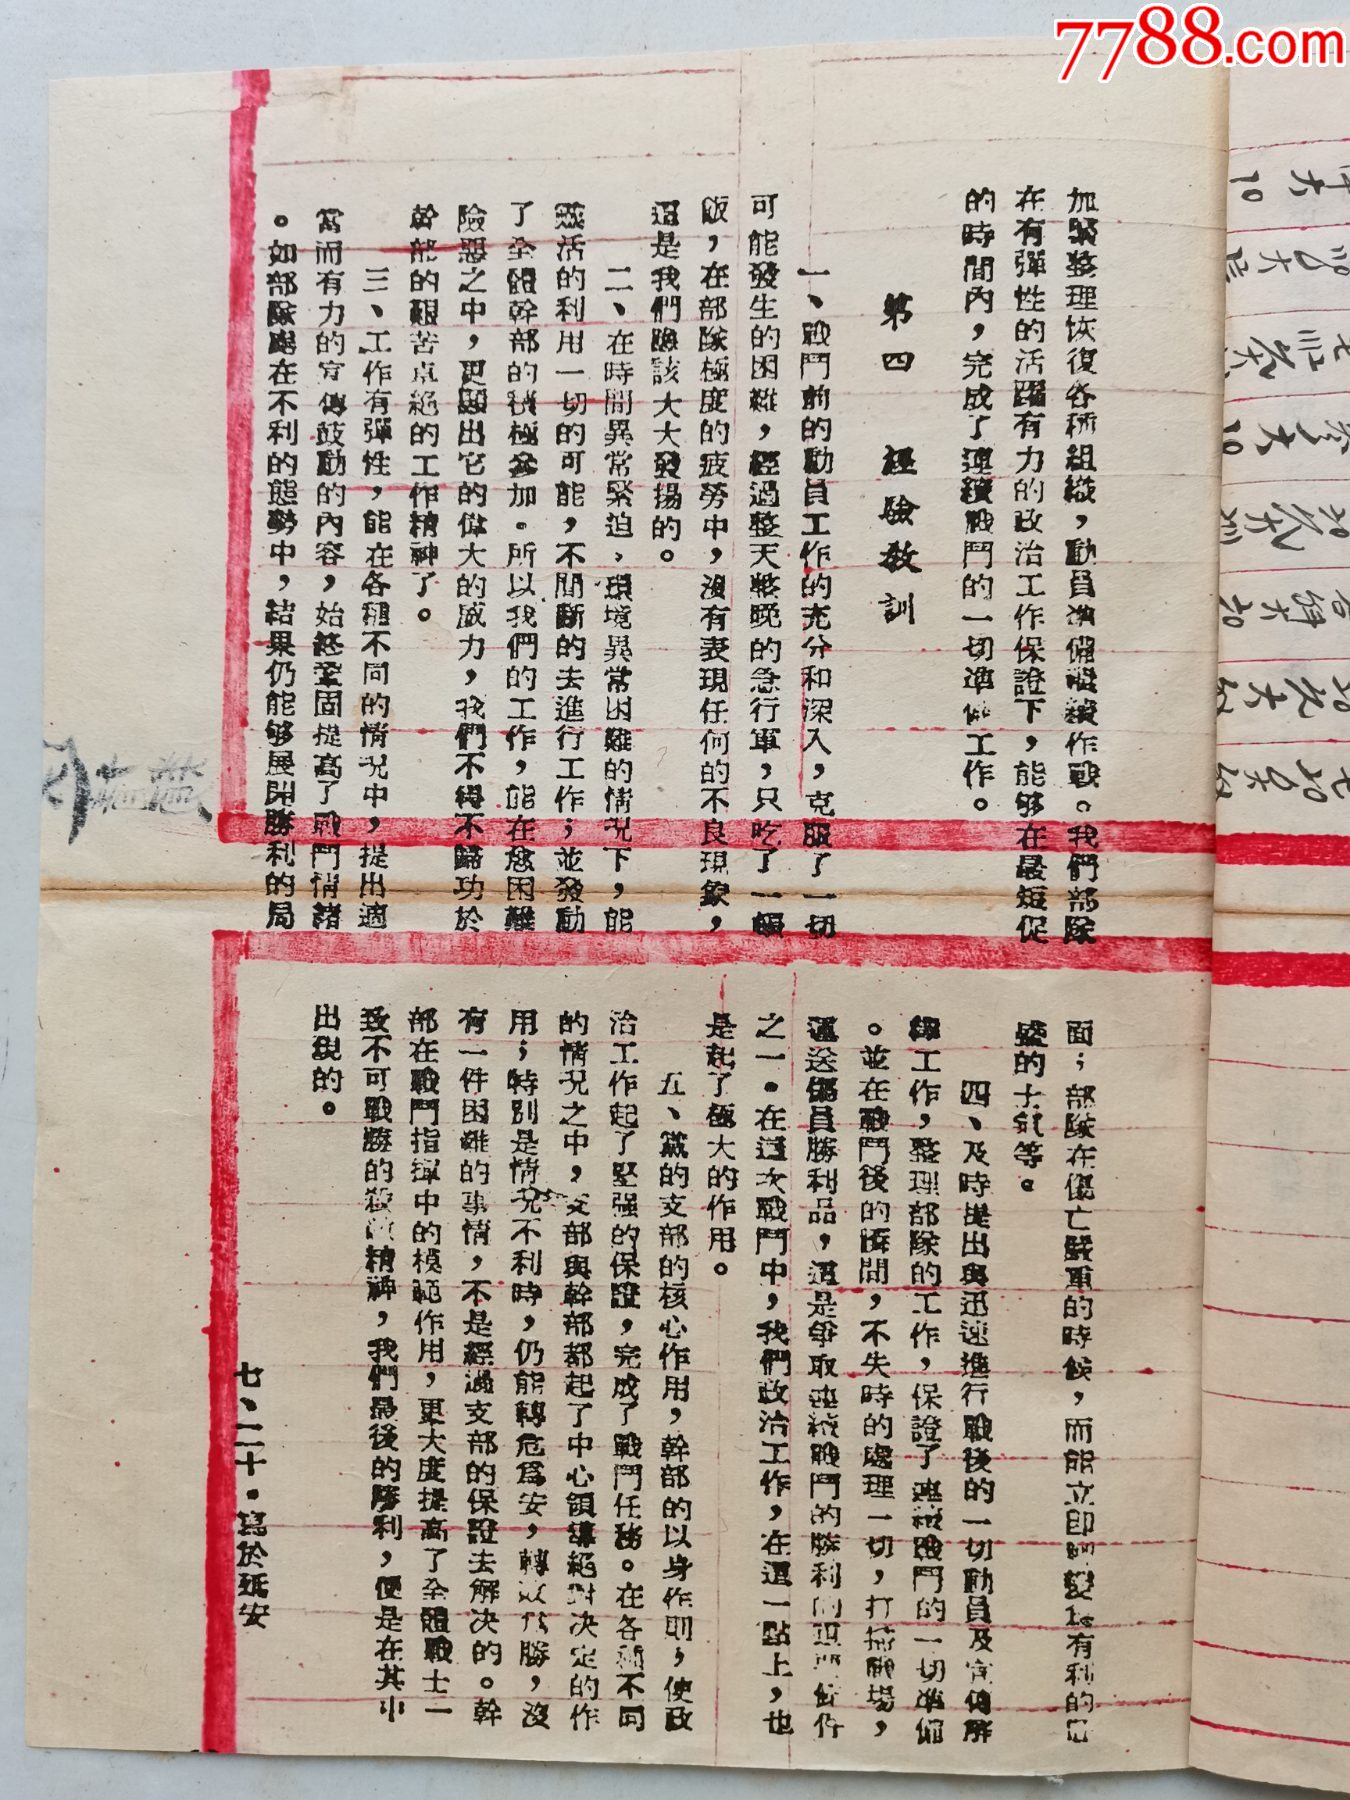 7788.com
加緊整理恢復各種組織，動員準備繼續作戰。我們部隊
在有彈性的活躍有力的政治工作保證下，能够在最短促
的時間內，完成了連續戰鬥的一切準備工作。
第四　經驗教訓
一、戰鬥前的動員工作的充分和深入，克服了一切
可能發生的困難，經過整天整晚的急行軍，只吃了一頓
飯，在部隊極度的疲勞中，沒有表現任何的不良現象，
這是我們應該大大發揚的。
二、在時間異常緊迫，環境異常困難的情况下，能
靈活的利用一切的可能，不間斷的去進行工作；並發動
了全體幹部的積極參加。所以我們的工作，能在愈困難
險惡之中，更顯出它的偉大的威力，我們不得不歸功於
幹部的艱苦卓絕的工作精神了。
三、工作有彈性，能在各種不同的情况中，提出適
當而有力的宣傳鼓動的內容，始終鞏固提高了戰鬥情緒
。如部隊處在不利的態勢中，結果仍能够展開勝利的局
面；部隊在傷亡嚴重的時候，而能立即轉變為有利的旺
盛的士氣等。
四、及時提出與迅速進行戰後的一切動員及宣傳解
釋工作，整理部隊的工作，保證了連續戰鬥的一切準備
。並在戰鬥後的瞬間，不失時的處理一切，打掃戰場，
運送傷員勝利品，這是爭取連續戰鬥的勝利的重要條件
之一。在這次戰鬥中，我們政治工作，在這一點上，也
是起了極大的作用。
五、黨的支部的核心作用，幹部的以身作則，使政
治工作起了堅强的保證，完成了戰鬥任務。在各種不同
的情况之中，支部與幹部都起了中心領導絕對決定的作
用；特別是情况不利時，仍能轉危爲安，轉敗爲勝，沒
有一件困難的事情，不是經過支部的保證去解决的。幹
部在戰鬥指揮中的模範作用，更大度提高了全體戰士一
致不可戰勝的殺敵精神，我們最後的勝利，便是在其中
出現的。
七、二十。寫於延安